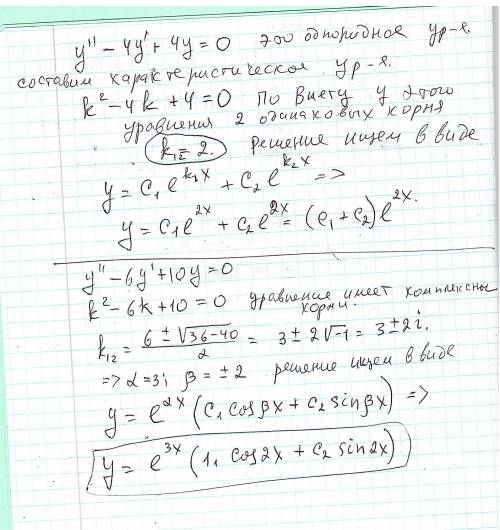 y'' - 4y' + 4y = 0 это однородное ур-е
составим характеристическое ур-е.
k² - 4k + 4 = 0 По Виету у этого
уравнения 2 одинаковых корня
k₁₂ = 2. Решение ищем в виде
y = C₁e^{k₁x} + C₂e^{k₂x} =>
y = C₁e^{2x} + C₂e^{2x} = (C₁ + C₂)e^{2x}.
y'' - 6y' + 10y = 0
k² - 6k + 10 = 0 уравнение имеет комплексны
корни.
k₁₂ = (6 ± √(36-40))/2 = 3 ± 2√-1 = 3 ± 2i.
=> α = 3; β = ±2 решение ищем в виде
y = e^{αx} (C₁ cosβx + C₂ sinβx) =>
y = e^{3x} (1, cos2x + C₂ sin2x)